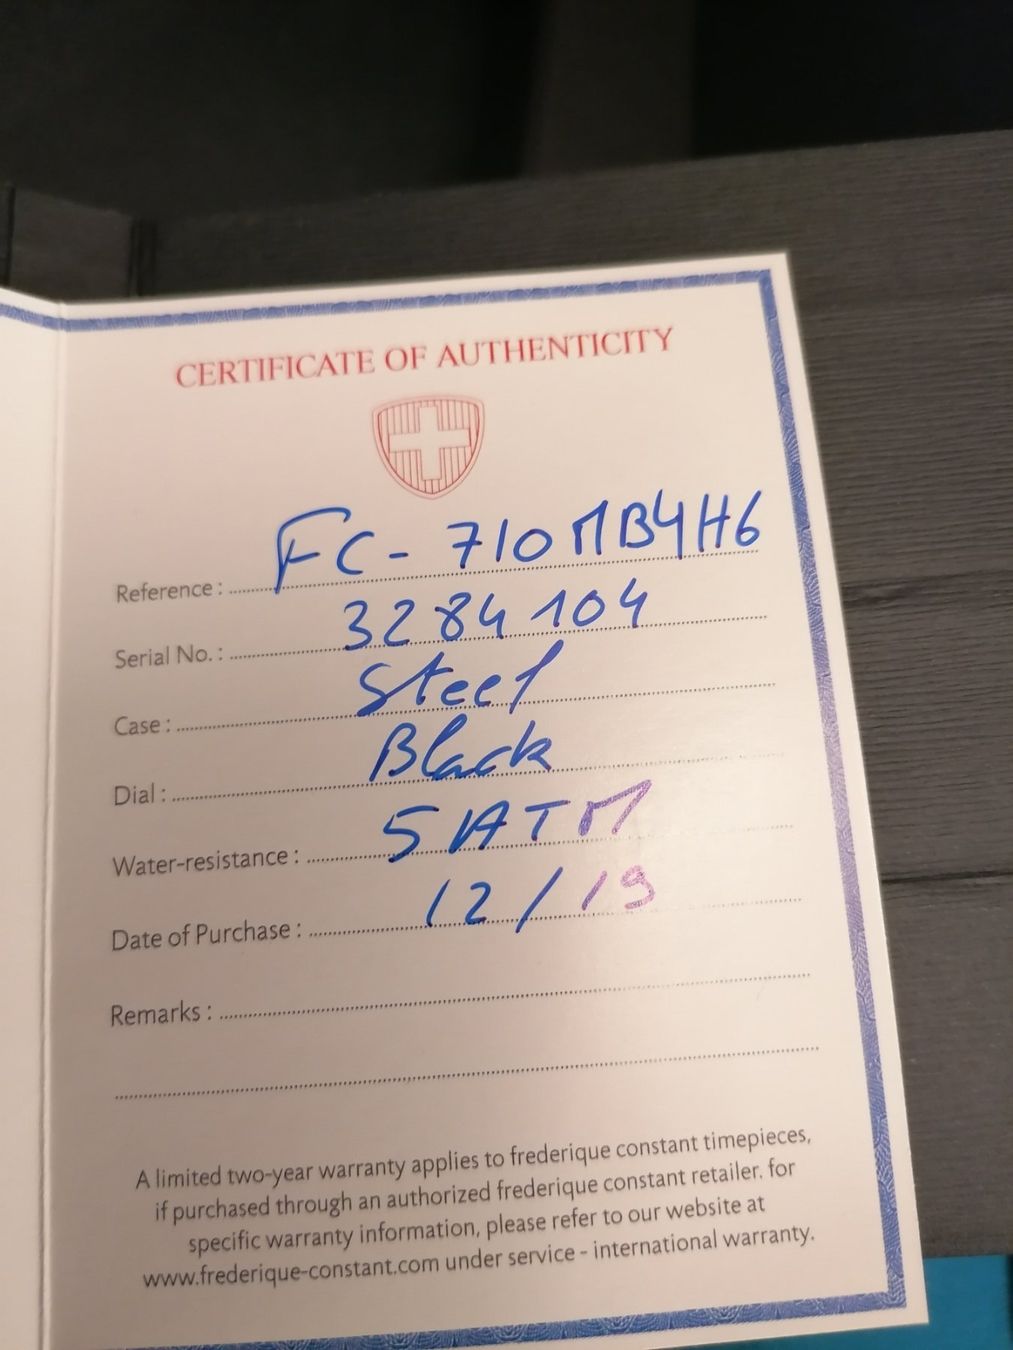 CERTIFICATE OF AUTHENTICITY
Reference : FC-710MB4H6
Serial No. : 3284104
Case : Steel
Dial : Black
Water-resistance : 5 ATM
Date of Purchase : 12/19
Remarks :
A limited two-year warranty applies to frederique constant timepieces,
if purchased through an authorized frederique constant retailer. for
specific warranty information, please refer to our website at
www.frederique-constant.com under service - international warranty.